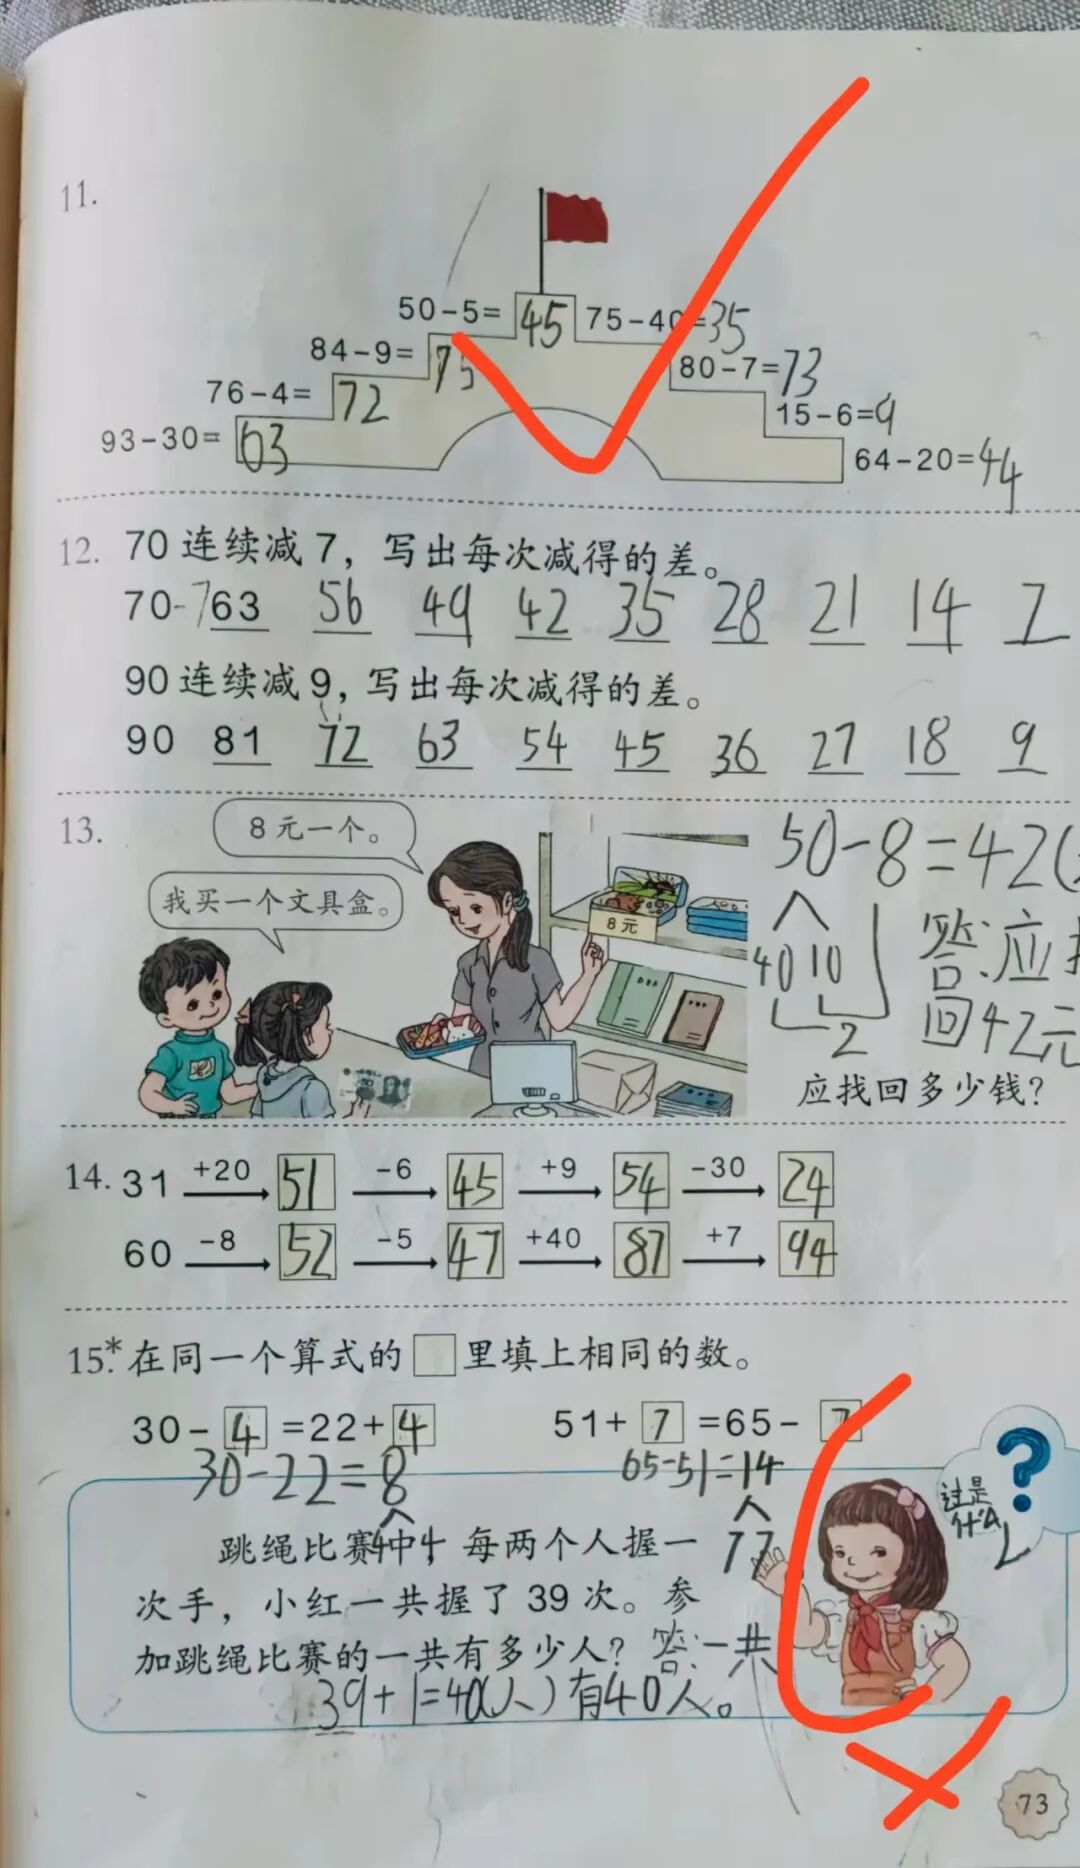 11.
50-5= 45 75-40=35
84-9= 75 80-7=73
76-4= 72 15-6=9
93-30= 63 64-20=44
12. 70连续减7，写出每次减得的差。
70-7 63 56 49 42 35 28 21 14 7
90连续减9，写出每次减得的差。
90 81 72 63 54 45 36 27 18 9
13.
8元一个。
我买一个文具盒。
8元
50-8=42(
40 10
2
答:应
回42元
应找回多少钱?
14. 31 +20 51 -6 45 +9 54 -30 24
60 -8 52 -5 47 +40 87 +7 94
15.* 在同一个算式的□里填上相同的数。
30- 4 =22+ 4 51+ 7 =65- 7
30-22=8 65-51=14
4 4 7 7
?
过是
什么
跳绳比赛中，每两个人握一
次手，小红一共握了39次。参
加跳绳比赛的一共有多少人? 答:一共
39+1=40(人) 有40人。
73